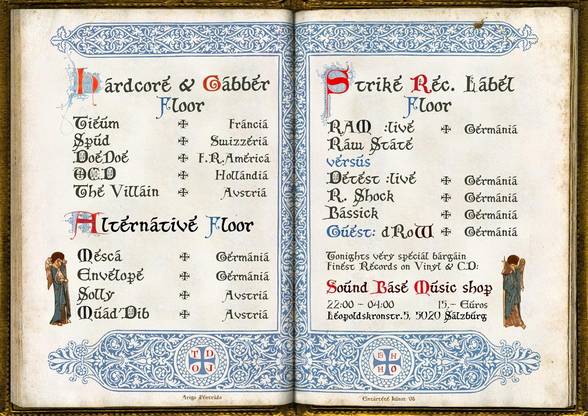 Hardcore & Gabber
Floor
Tieum ✠ Francia
Spud ✠ Swizzeria
DoeDoe ✠ F.R.America
OCD ✠ Hollandia
The Villain ✠ Avstria
Alternative Floor
Mesca ✠ Germania
Envelope ✠ Germania
Solly ✠ Avstria
Muad'Dib ✠ Avstria
T D
O J
Strike Rec. Label
Floor
RAM :live ✠ Germania
Raw State
versus
Detest :live ✠ Germania
R. Shock ✠ Germania
Bassick ✠ Germania
Guest: dRoW ✠ Germania
Tonights very special bargain
Finest Records on Vinyl & C.D:
Sound Base Music shop
22:00 - 04:00 15,- Euros
Leopoldskronstr.5, 5020 Salzburg
H H
H O